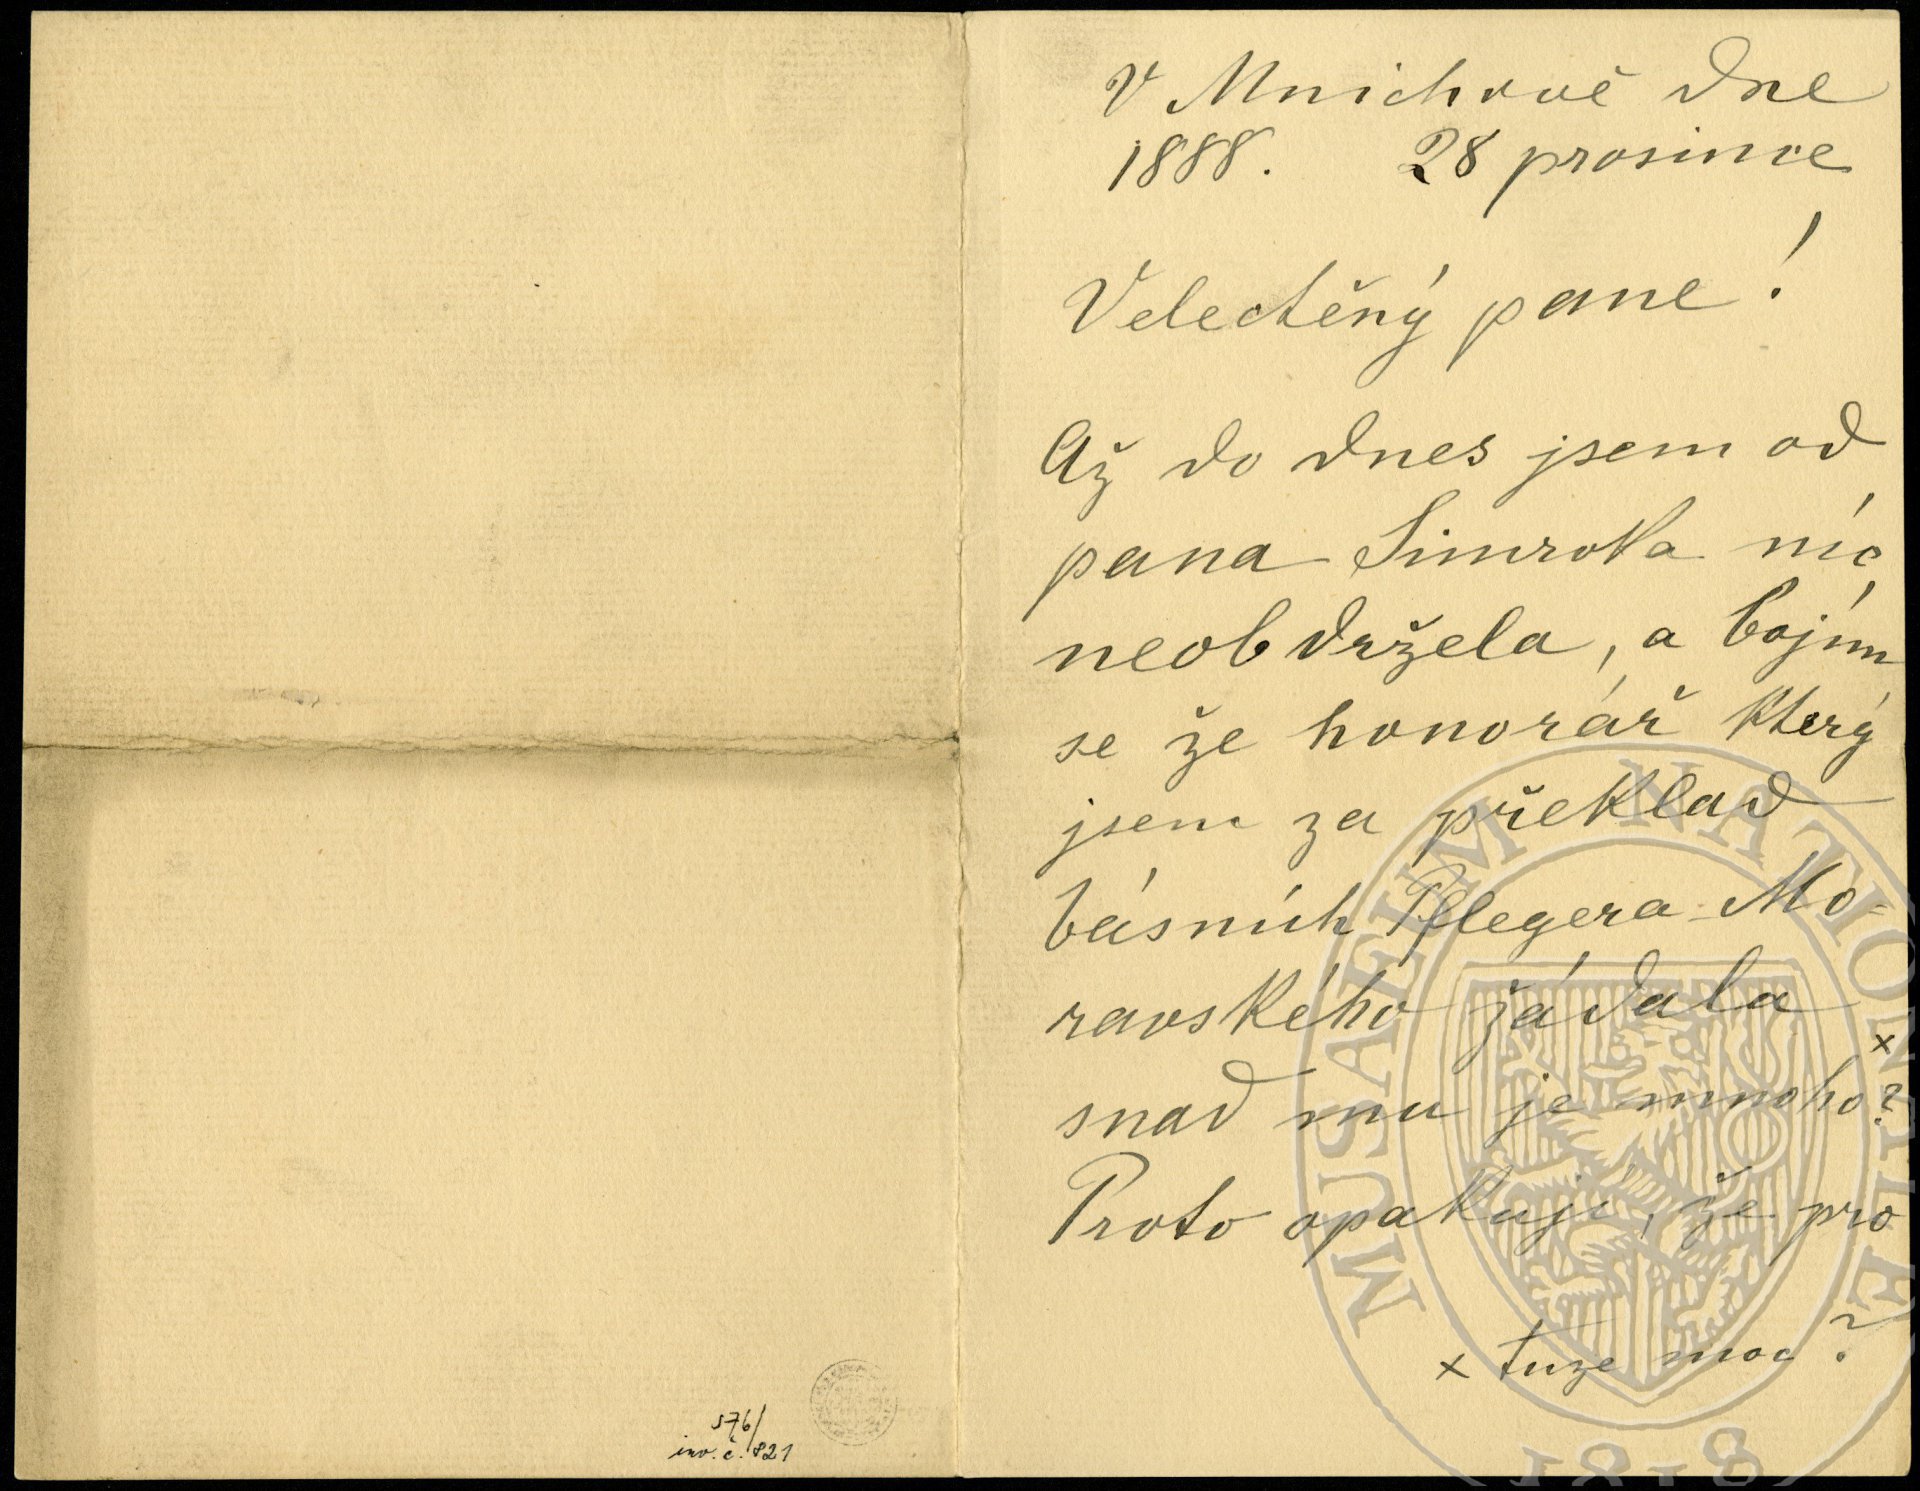 V Mnichově dne
1888. 28 prosince
Velectěný pane!
Až do dnes jsem od
pana Simroka nic
neobdržela, a bojím
se že honorář který
jsem za překlad
básních Pflegera-Mo=
ravského žádala
snad mu je mnoho? ×
Proto opakuji, že pro
× tuze moc?
576/
inv. č. 821
MUSAEUM NATIONALE
1818